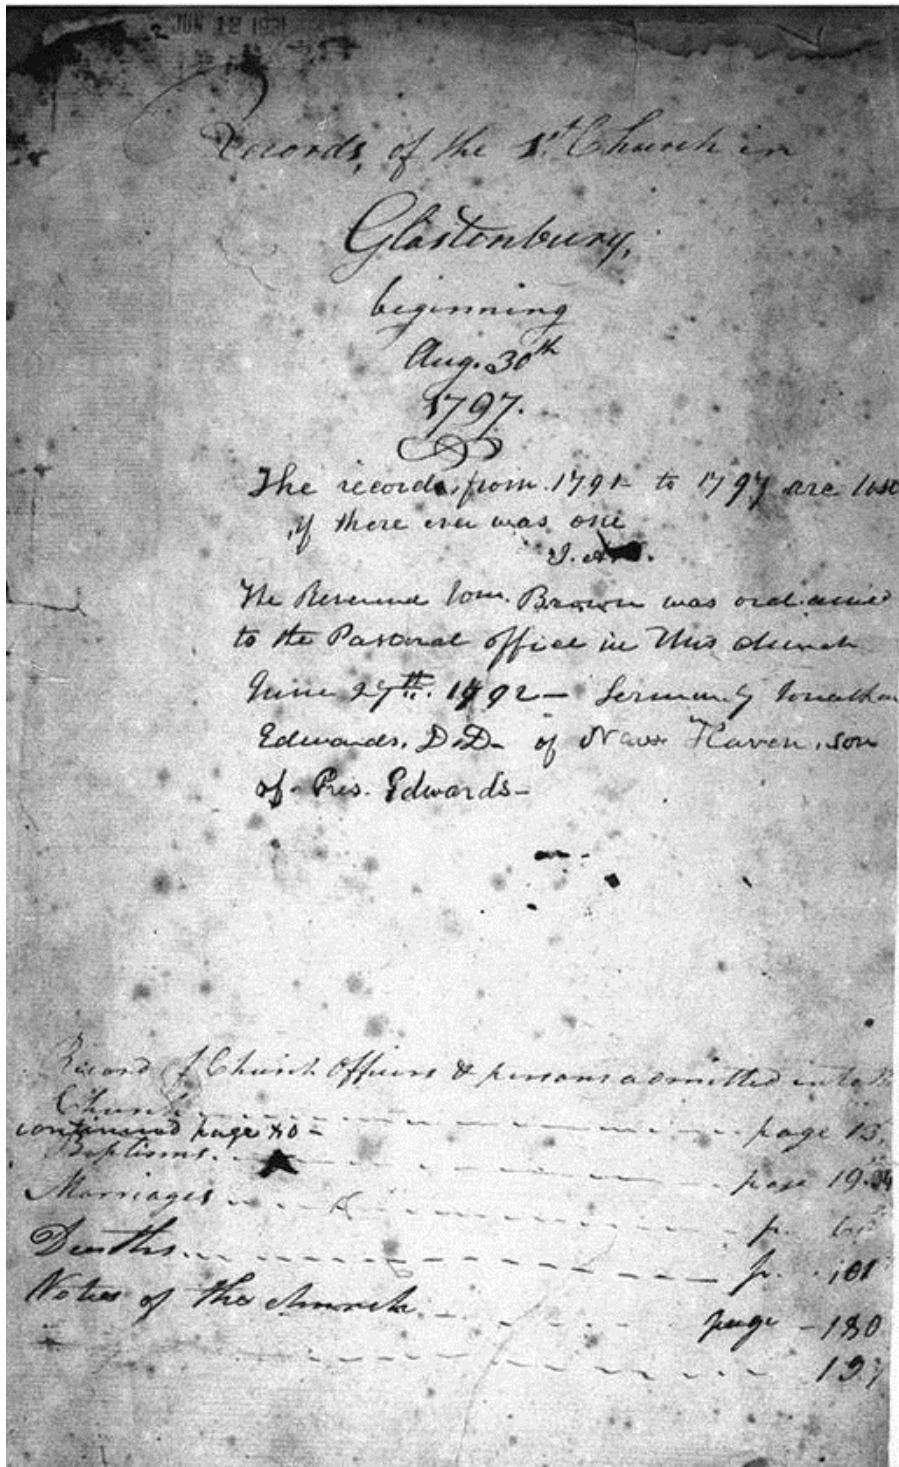 JUN 12 1931
Records, of the 1st Church in
Glastonbury,
beginning
Aug. 30th
1797.
The records, from 1791- to 1797 are lost
if there ever was one
The Reverend Wm. Brown was ordained
to the Pastoral office in this church
June 27th. 1792 - Sermon by Jonathan
Edwards, D.D- of New Haven, son
of Pres. Edwards-
Record of Church Officers & persons admitted into
Church page 13,
continued page 80-
Baptisms. page 19
Marriages p.
Deaths p. 101
Notes of the church page - 180